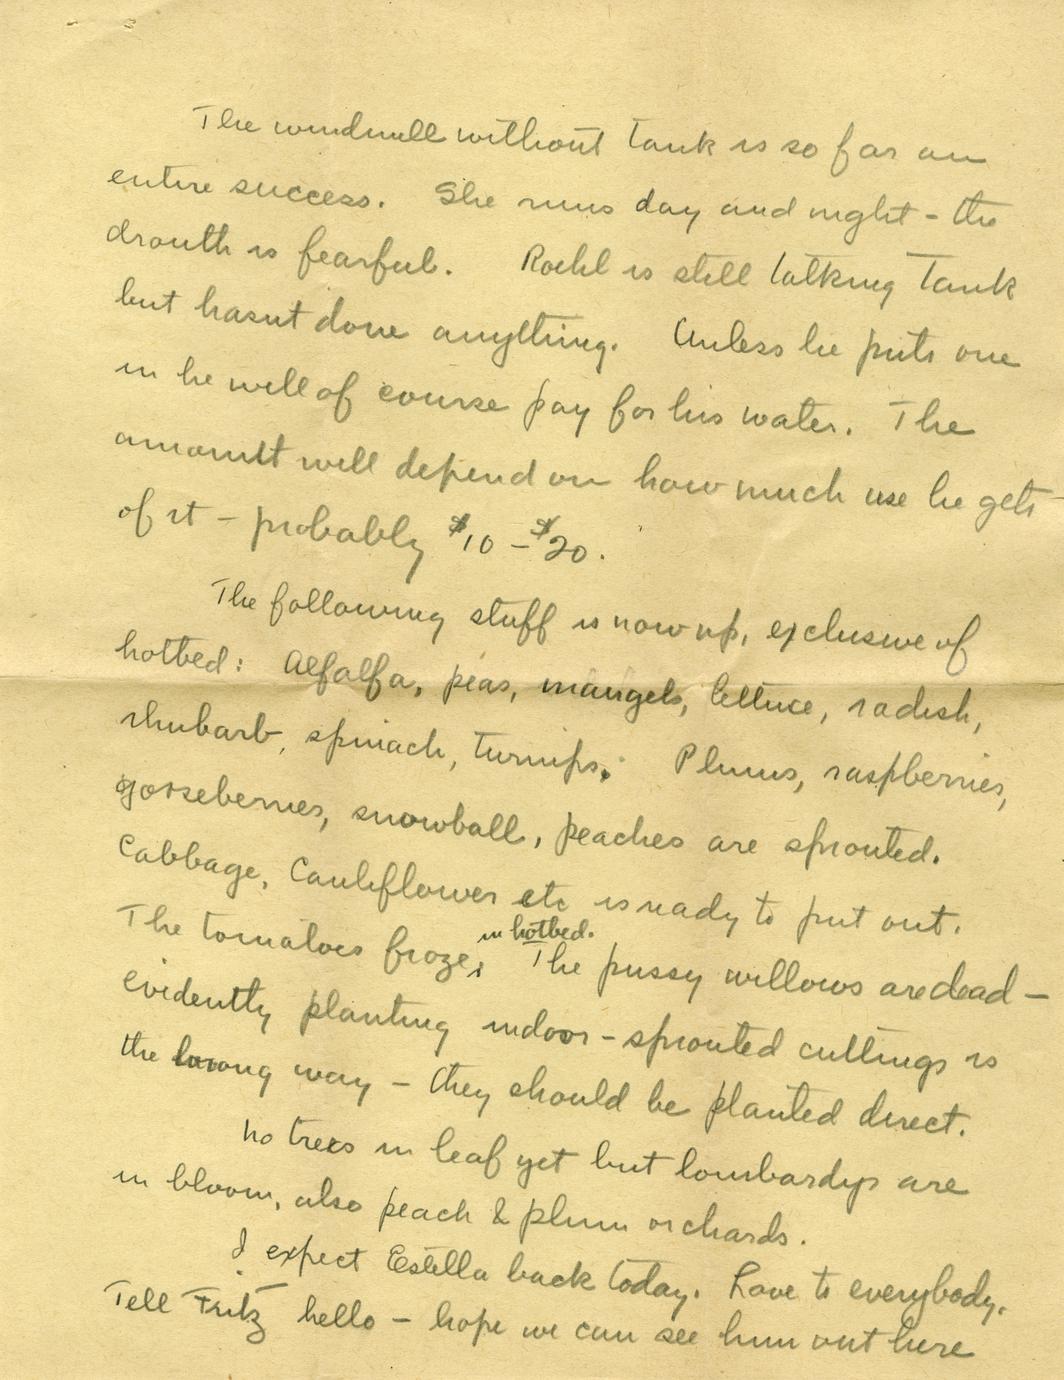 The windmill without tank is so far an
entire success. She runs day and night - the
drouth is fearful. Roehl is still talking tank
but hasnt done anything. Unless he puts one
in he will of course pay for his water. The
amount will depend on how much use he gets
of it - probably $10 - $20.
The following stuff is now up, exclusive of
hotbed: Alfalfa, peas, mangels, lettuce, radish,
rhubarb, spinach, turnips. Plums, raspberries,
gooseberries, snowball, peaches are sprouted.
Cabbage, Cauliflower etc is ready to put out.
in hotbed.
The tomatoes froze. The pussy willows are dead -
evidently planting indoor - sprouted cuttings is
the wrong way - they should be planted direct.
No trees in leaf yet but lombardys are
in bloom, also peach & plum orchards.
I expect Estella back today. Love to everybody.
Tell Fritz hello - hope we can see him out here